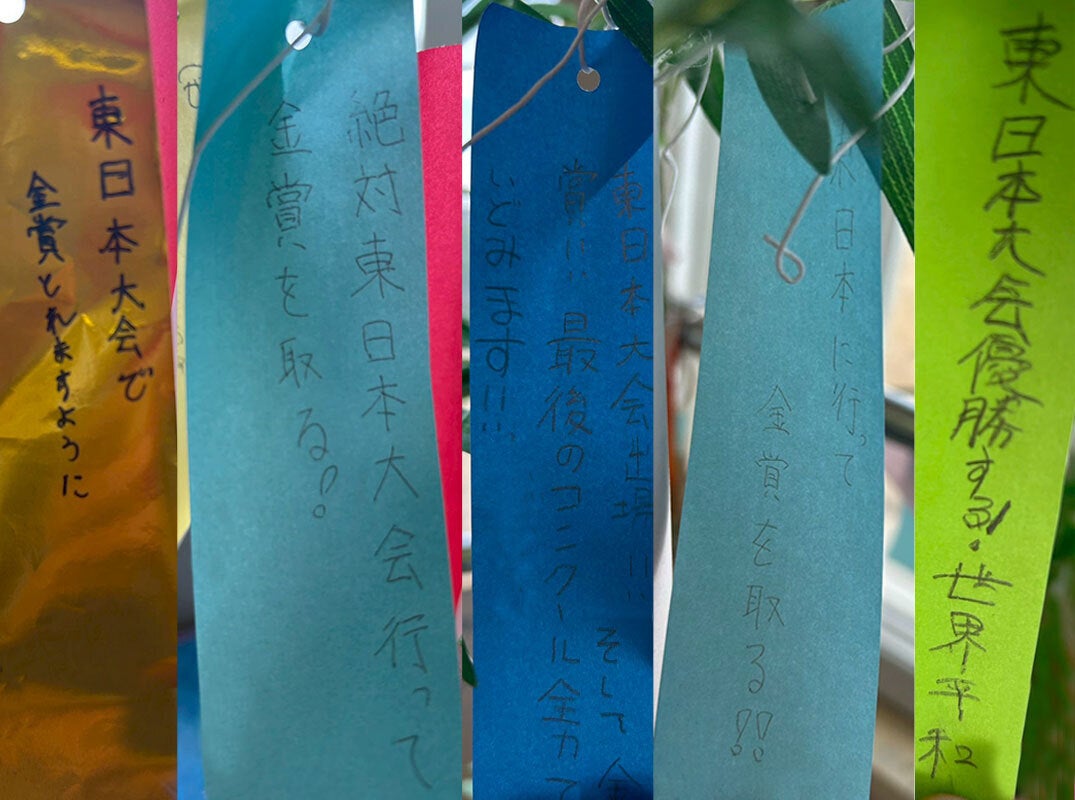 東日本大会で
金賞とれますように
絶対東日本大会行って
金賞を取る!
東日本大会出場!!! そして金
賞!!! 最後のコンクール全力で
いどみます!!!
日本に行って
金賞を取る!!
東日本大会優勝する!世界平和